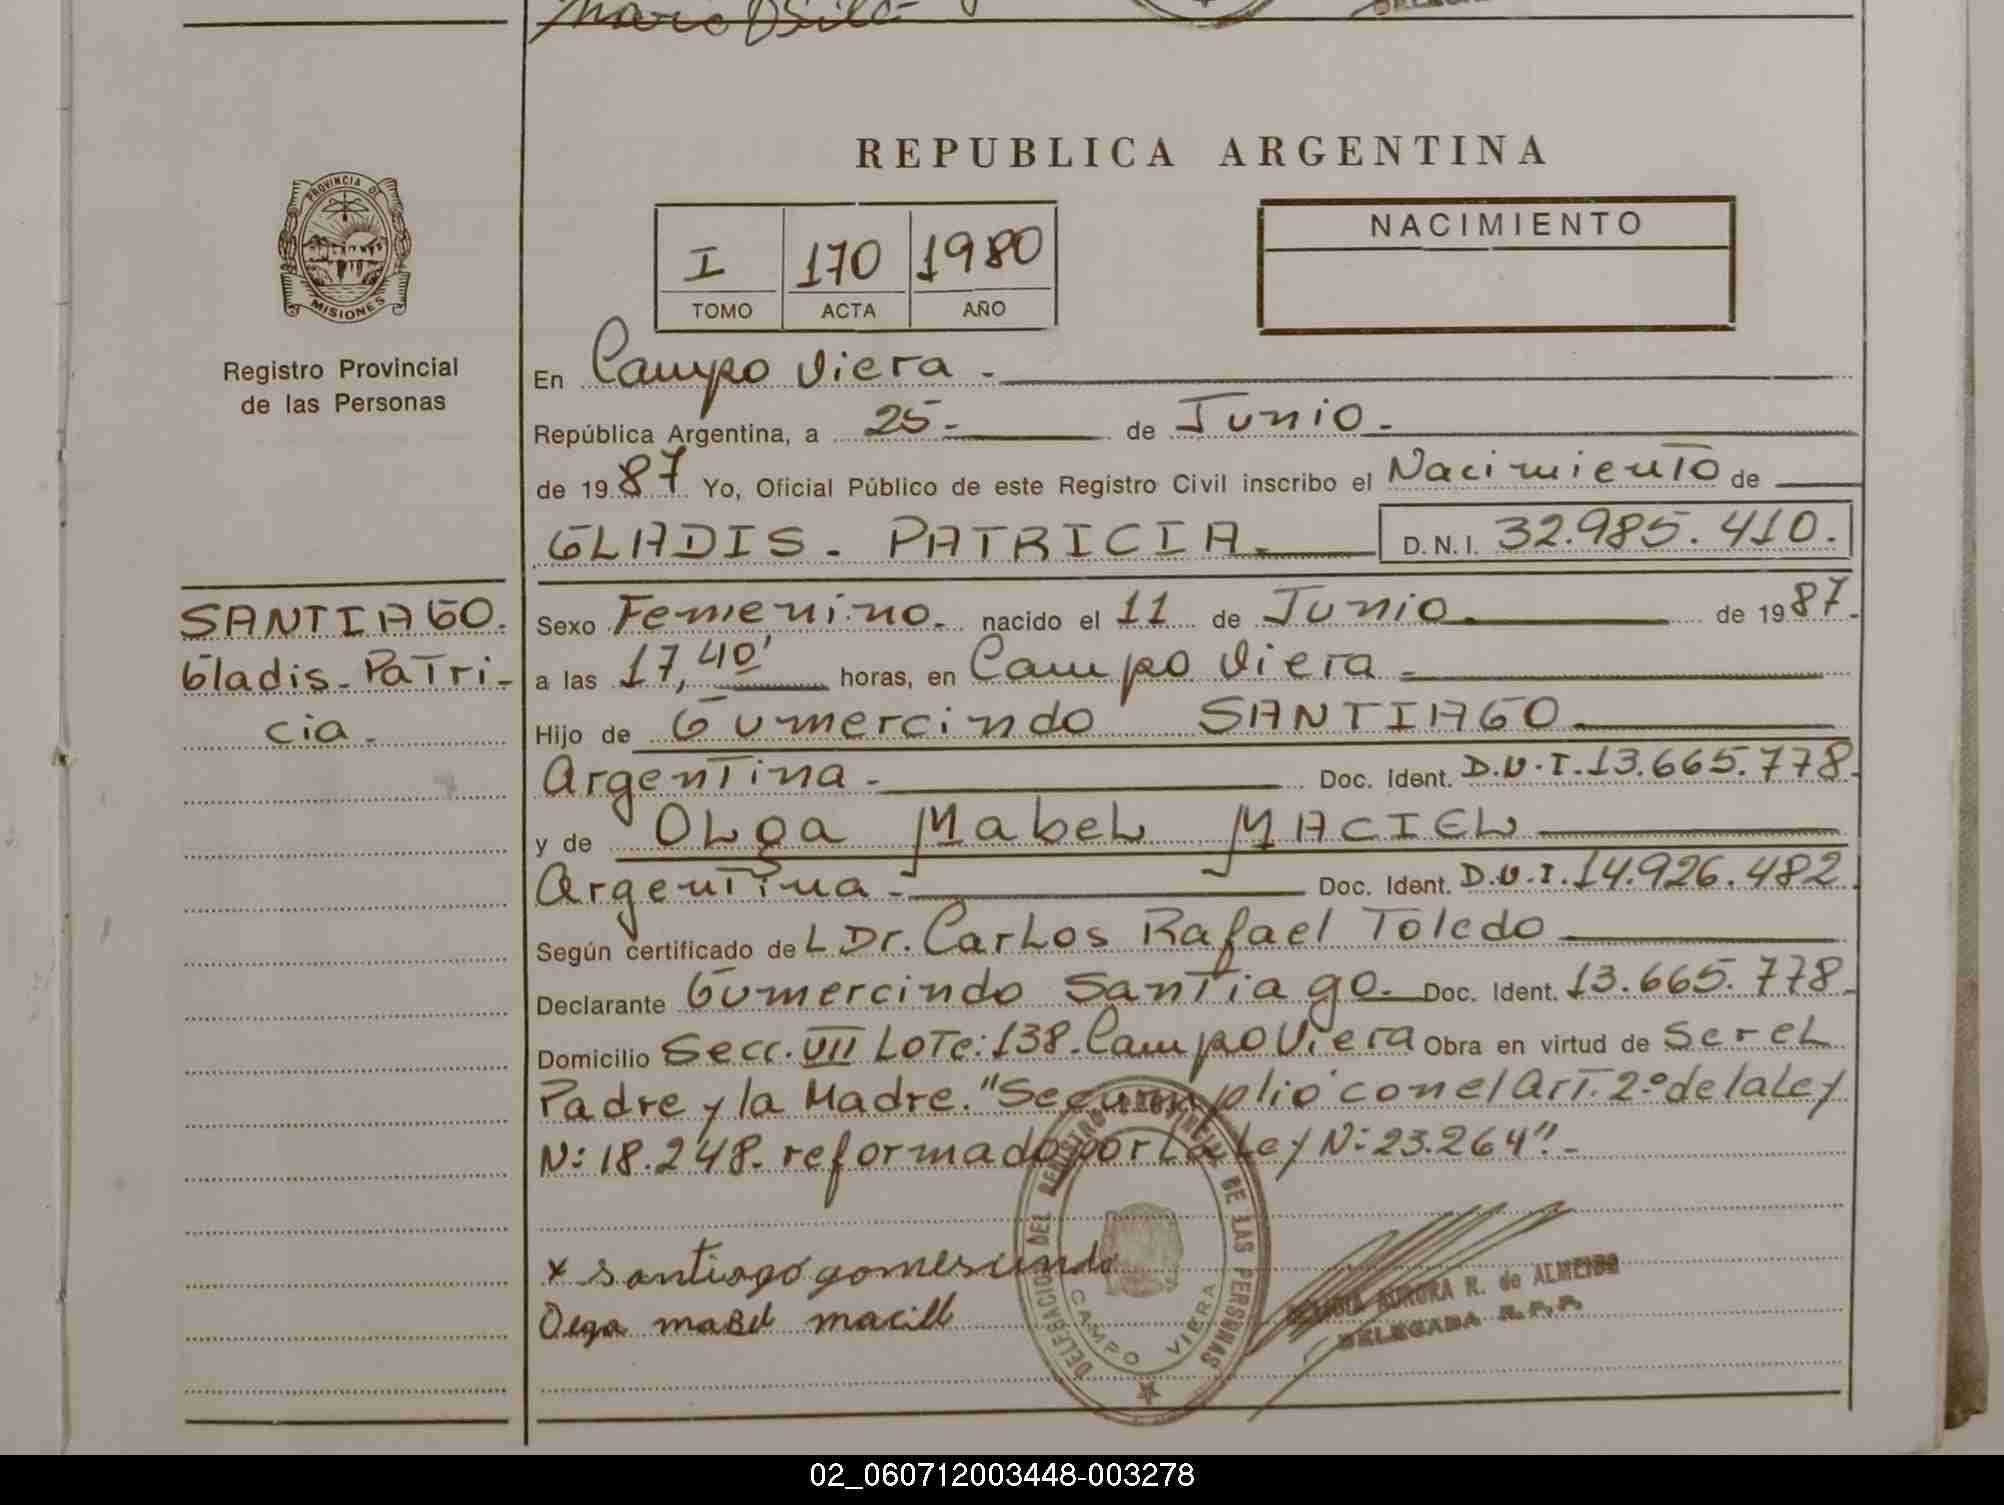 PROVINCIA DE
MISIONES
Registro Provincial
de las Personas
SANTIAGO.
Gladis-Patri-
cia.-
REPUBLICA ARGENTINA
I 170 1980
TOMO ACTA AÑO
NACIMIENTO
En Campo Viera.-
República Argentina, a 25- de Junio.-
de 1987 Yo, Oficial Público de este Registro Civil inscribo el Nacimiento de
GLADIS- PATRICIA.- D.N.I. 32.985.410.
Sexo Femenino.- nacido el 11 de Junio de 1987-
a las 17,40' horas, en Campo Viera.-
Hijo de Gumercindo SANTIAGO.
Argentina.- Doc. Ident. D.U.I.13.665.778-
y de OLga MabeL MACIEL
Argentina.- Doc. Ident. D.U.I.14.926.482
Según certificado deL Dr. CarLos Rafael Toledo
Declarante Gumercindo Santiago.- Doc. Ident. 13.665.778-
Domicilio Secc. VII LoTe:138.Campo Viera Obra en virtud de Ser eL
Padre y la Madre."Se cumplió con el Art. 2º de la Ley
N: 18.248. reformado por La Ley N: 23.264".-
x santiago gomersindo
Olga maBel maciel
DELEGACION DEL REGISTRO PROVINCIAL DE LAS PERSONAS
CAMPO VIERA
AURORA R. de ALMEIDA
DELEGADA R.P.P.
02_060712003448-003278